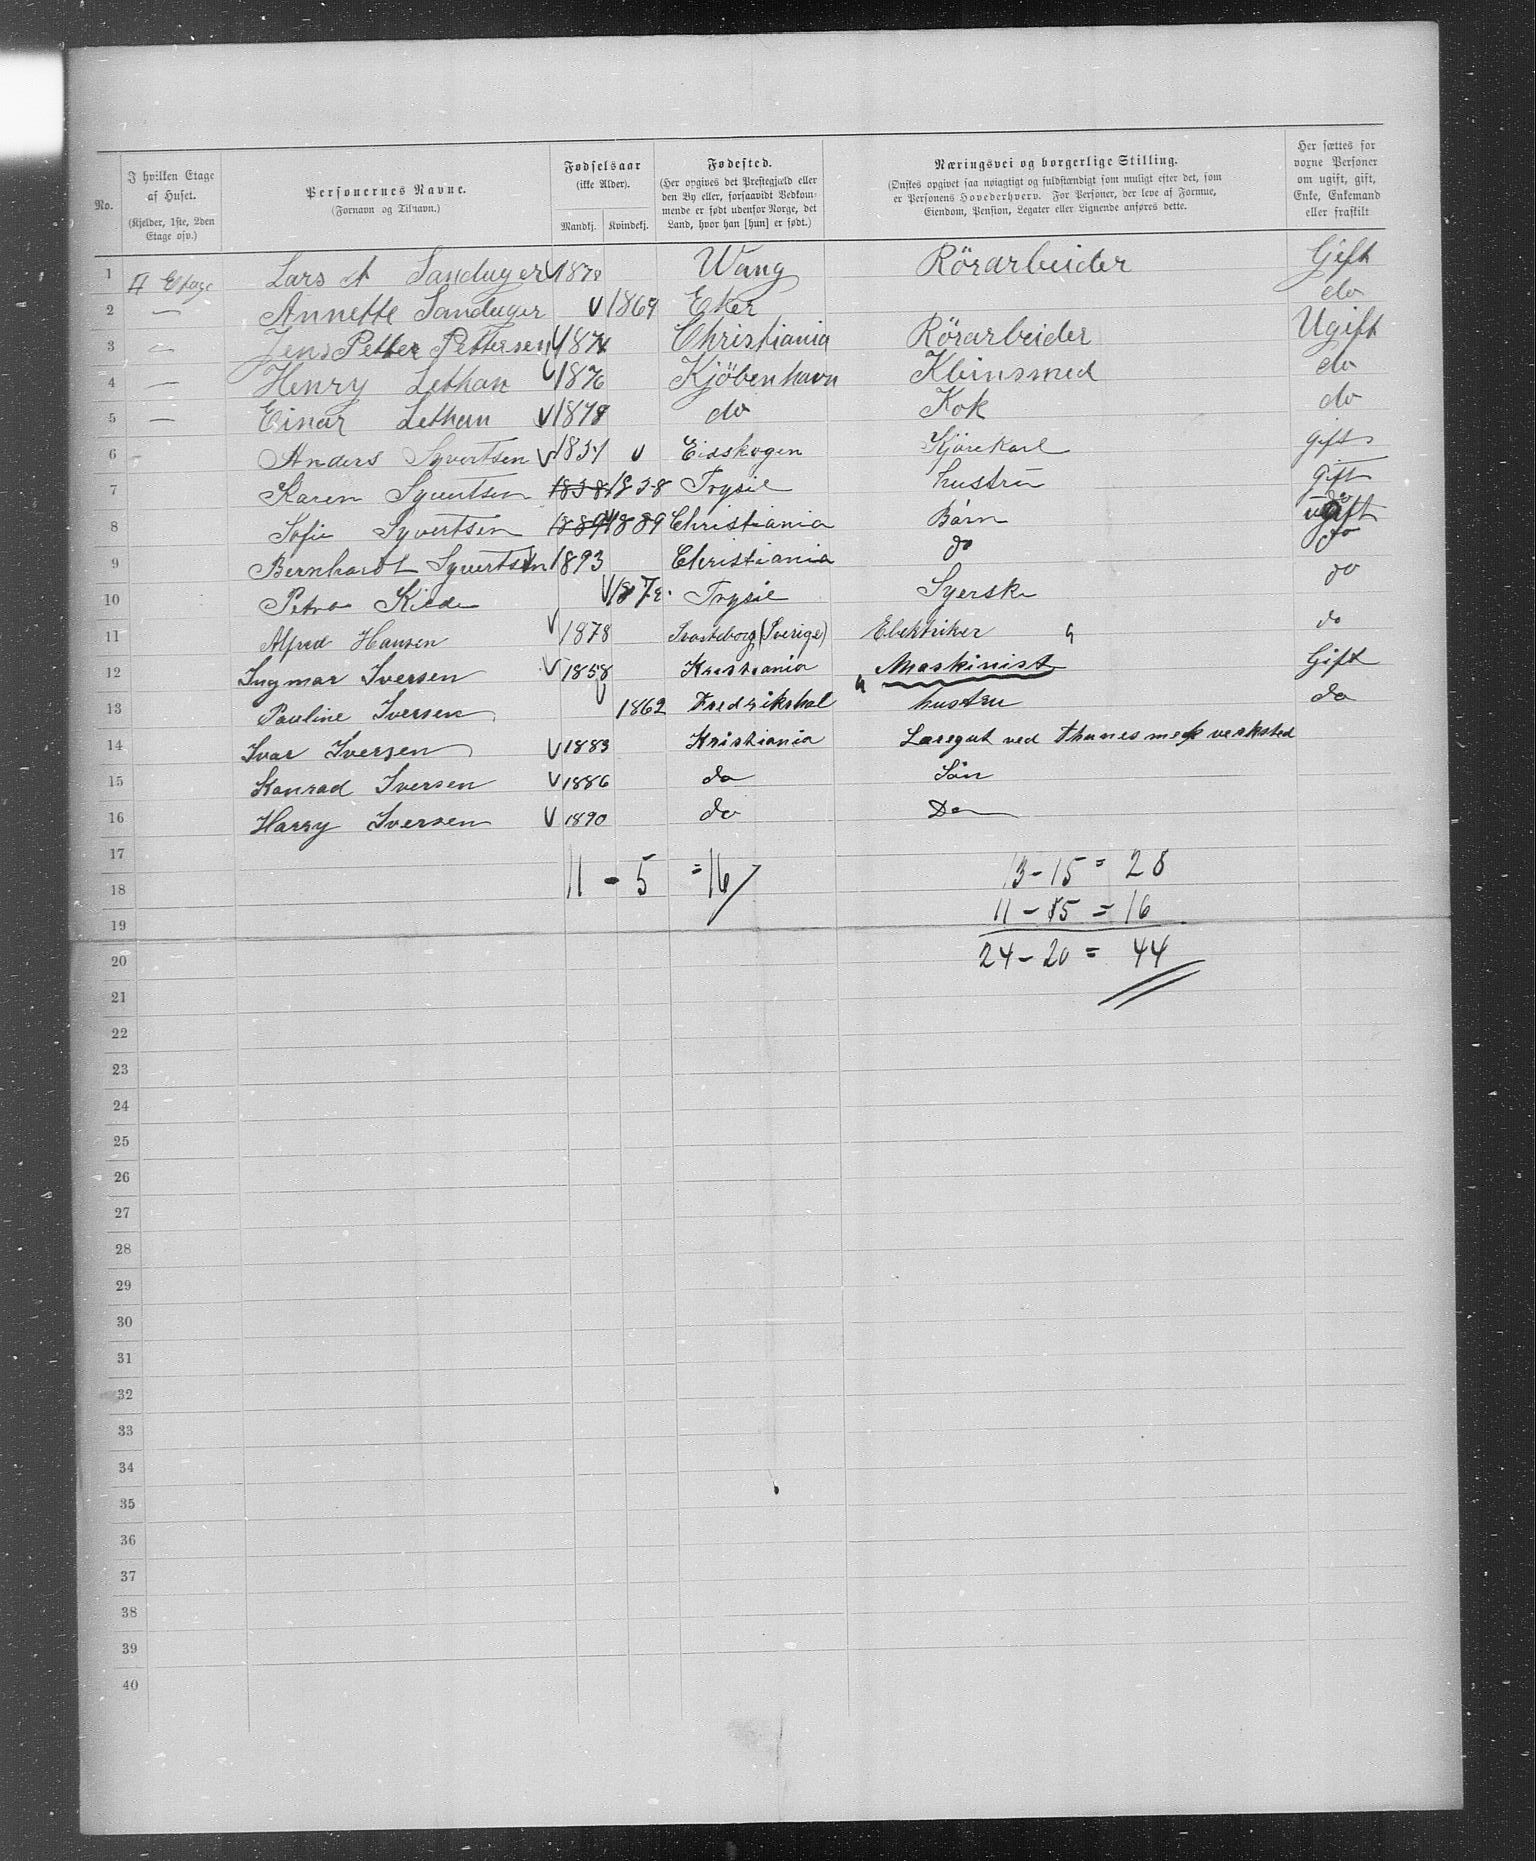 No.
I hvilken Etage af Huset.
(Kjelder, 1ste, 2den Etage osv.)
Personernes Navne.
(Fornavn og Tilnavn.)
Fødselsaar
(ikke Alder).
Mandkj. Kvindekj.
Fødested.
(Her opgives det Prestegjæld eller den By eller, forsaavidt Vedkommende er født udenfor Norge, det Land, hvor han [hun] er født.)
Næringsvei og borgerlige Stilling.
(Ønskes opgivet saa nøiagtigt og fuldstændigt som muligt efter det, som er Personens Hovederhverv. For Personer, der leve af Formue, Eiendom, Pension, Legater eller Lignende anføres dette.
Her sættes for voxne Personer om ugift, gift, Enke, Enkemand eller fraskilt
1 II Etage Lars A Sanduger 1878 Wang Rörarbeider Gift
2 — Annette Sanduger 1869 Eker do
3 — Jens Petter Pettersen 1874 Christiania Rörarbeider Ugift
4 — Henry Lethan 1876 Kjöbenhavn Kleinsmed do
5 — Einar Lethan 1878 do Kok do
6 Anders Syvertsen 1837 Eidskogen Kjörekarl gift
7 Karen Syvertsen 1838 1838 Trysil hustru Gift
8 Sofie Syvertsen 1889 1889 Christiania Börn ugift
9 Bernhardt Syvertsen 1893 Christiania do do
10 Petra Kilde 187 Trysil Syerske do
11 Alfred Hansen 1878 (Sverige) Elektriker do
12 Ingmar Iversen 1858 Kristiania Maskinist Gift
13 Pauline Iversen 1862 Fredrikshal hustru do
14 Ivar Iversen 1883 Kristiania Læregut ved Thunes mek verksted
15 Konrad Iversen 1886 do Sön
16 Harry Iversen 1890 do Do
17
11 - 5 = 16
13 - 15 = 28
18
11 - 5 = 16
19
24 - 20 = 44
20
21
22
23
24
25
26
27
28
29
30
31
32
33
34
35
36
37
38
39
40